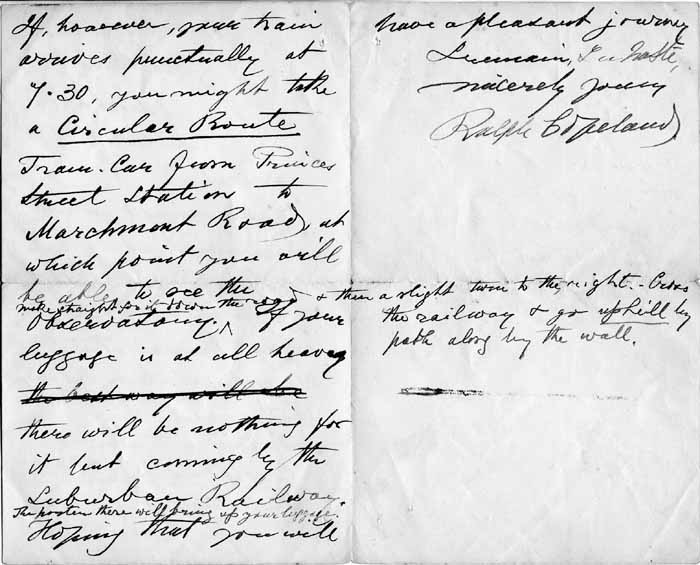 If, however, your train
arrives punctually at
7.30, you might take
a Circular Route
Tram-Car from Princes
Street Station to
Marchmont Road, at
which point you will
be able to see the
make straight for it down the road & then a slight turn to the right. - Cross
Observatory ^ If your
the railway & go uphill by
path along by the wall.
luggage is at all heavy
the best way will be
there will be nothing for
it but coming by the
Suburban Railway.
The porter there will bring up your luggage.
Hoping that you will
have a pleasant journey
I remain, In haste,
sincerely yours
Ralph Copeland